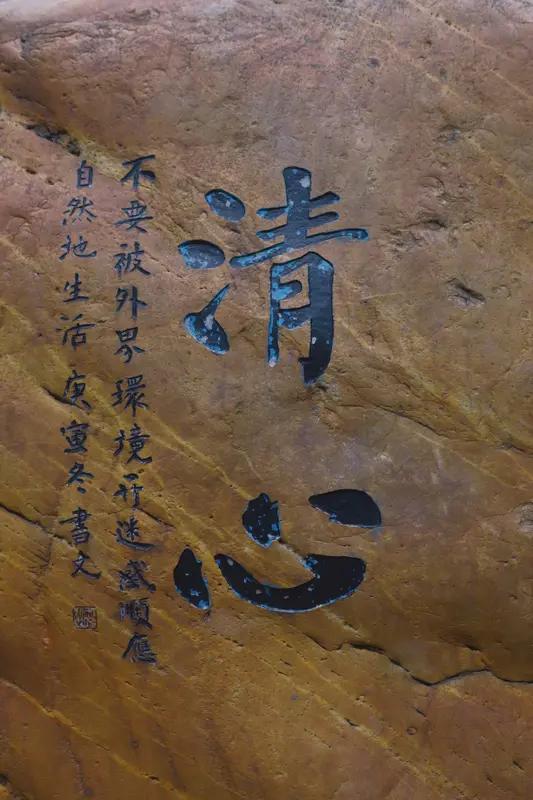 清心
不要被外界環境所迷惑順應
自然地生活 庚寅冬 書文